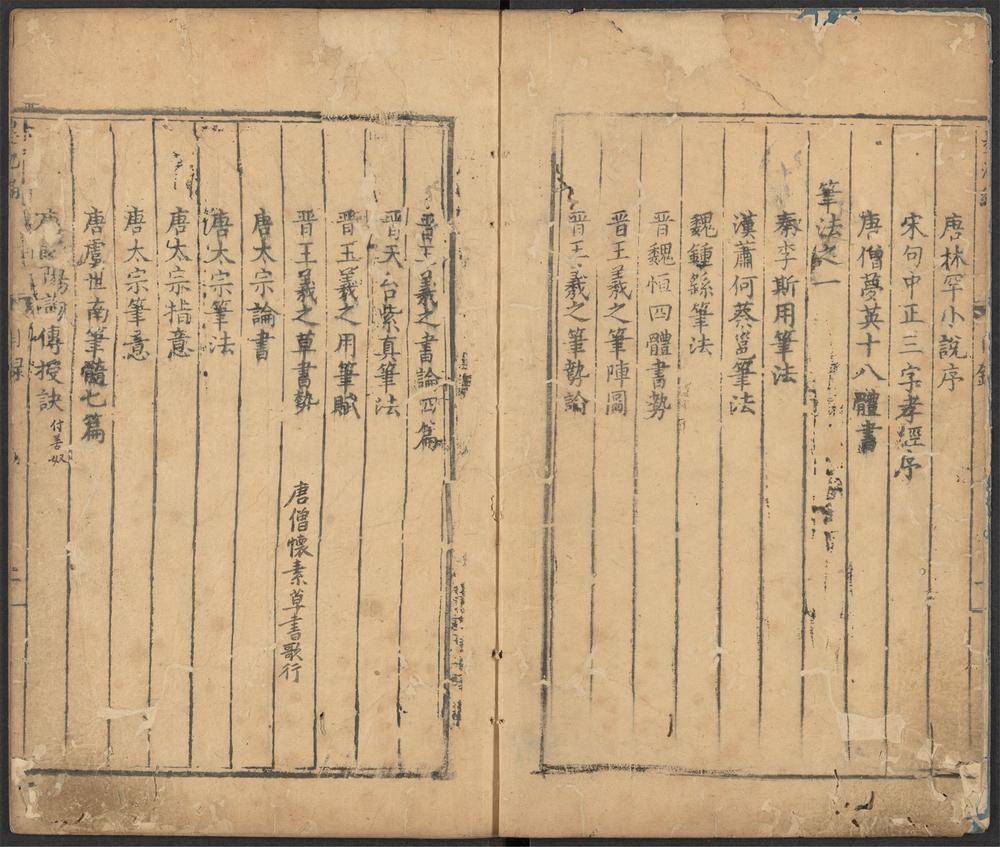 唐林罕小說序
宋句中正三字孝經序
唐僧夢英十八體書
筆法之一
秦李斯用筆法
漢蕭何蔡邕筆法
魏鍾繇筆法
晉魏恒四體書勢
晉王羲之筆陣圖
晉王羲之筆勢論
晉王羲之書論四篇
晉天台紫真筆法
晉王羲之用筆賦
晉王羲之草書勢 唐僧懷素草書歌行
唐太宗論書
唐太宗筆法
唐太宗指意
唐太宗筆意
唐虞世南筆髓七篇
陽詢傳授訣 付善奴